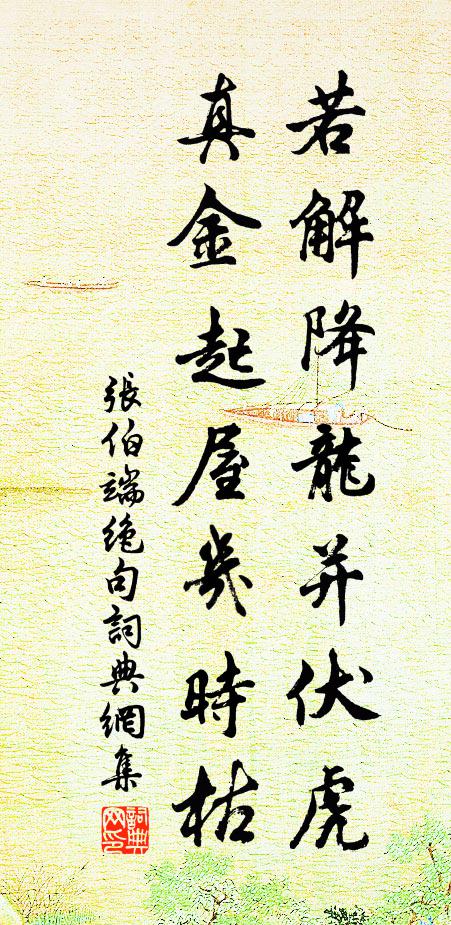 若解降龍并伏虎
真金起屋幾時枯
張伯端絶句詞典網集
詞典網印